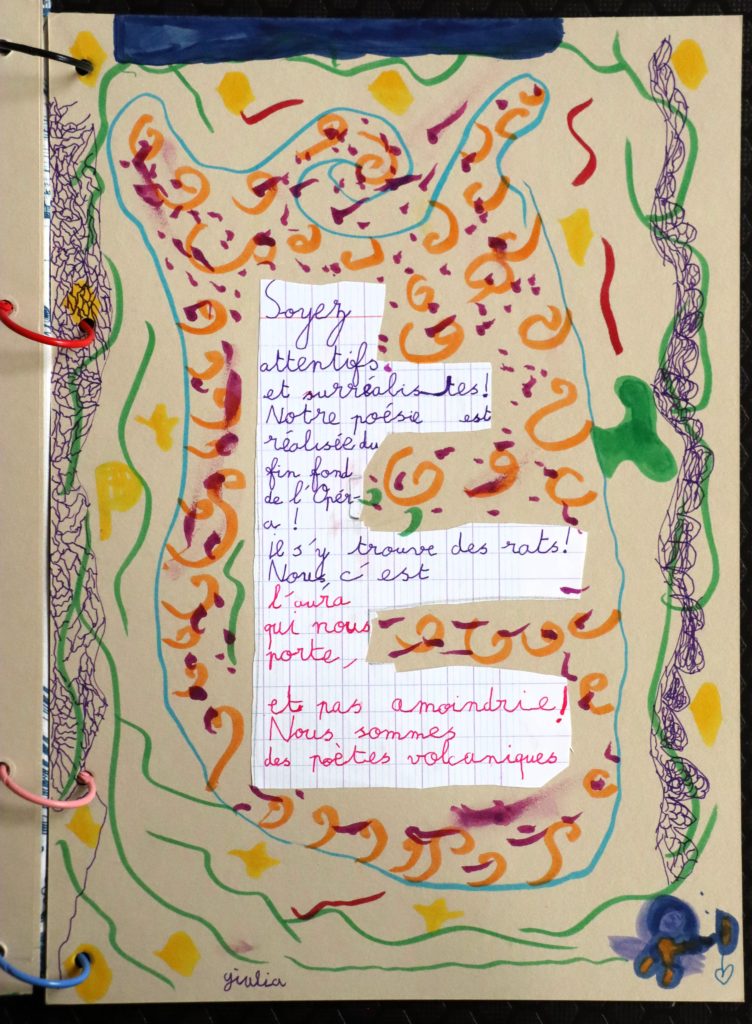 Soyez
attentifs
et surréalistes!
Notre poésie est
réalisée du
fin fond
de l'Opér-
a !
il s'y trouve des rats!
Nous, c'est
l'aura
qui nous
porte,
et pas amoindrie!
Nous sommes
des poètes volcaniques
giulia